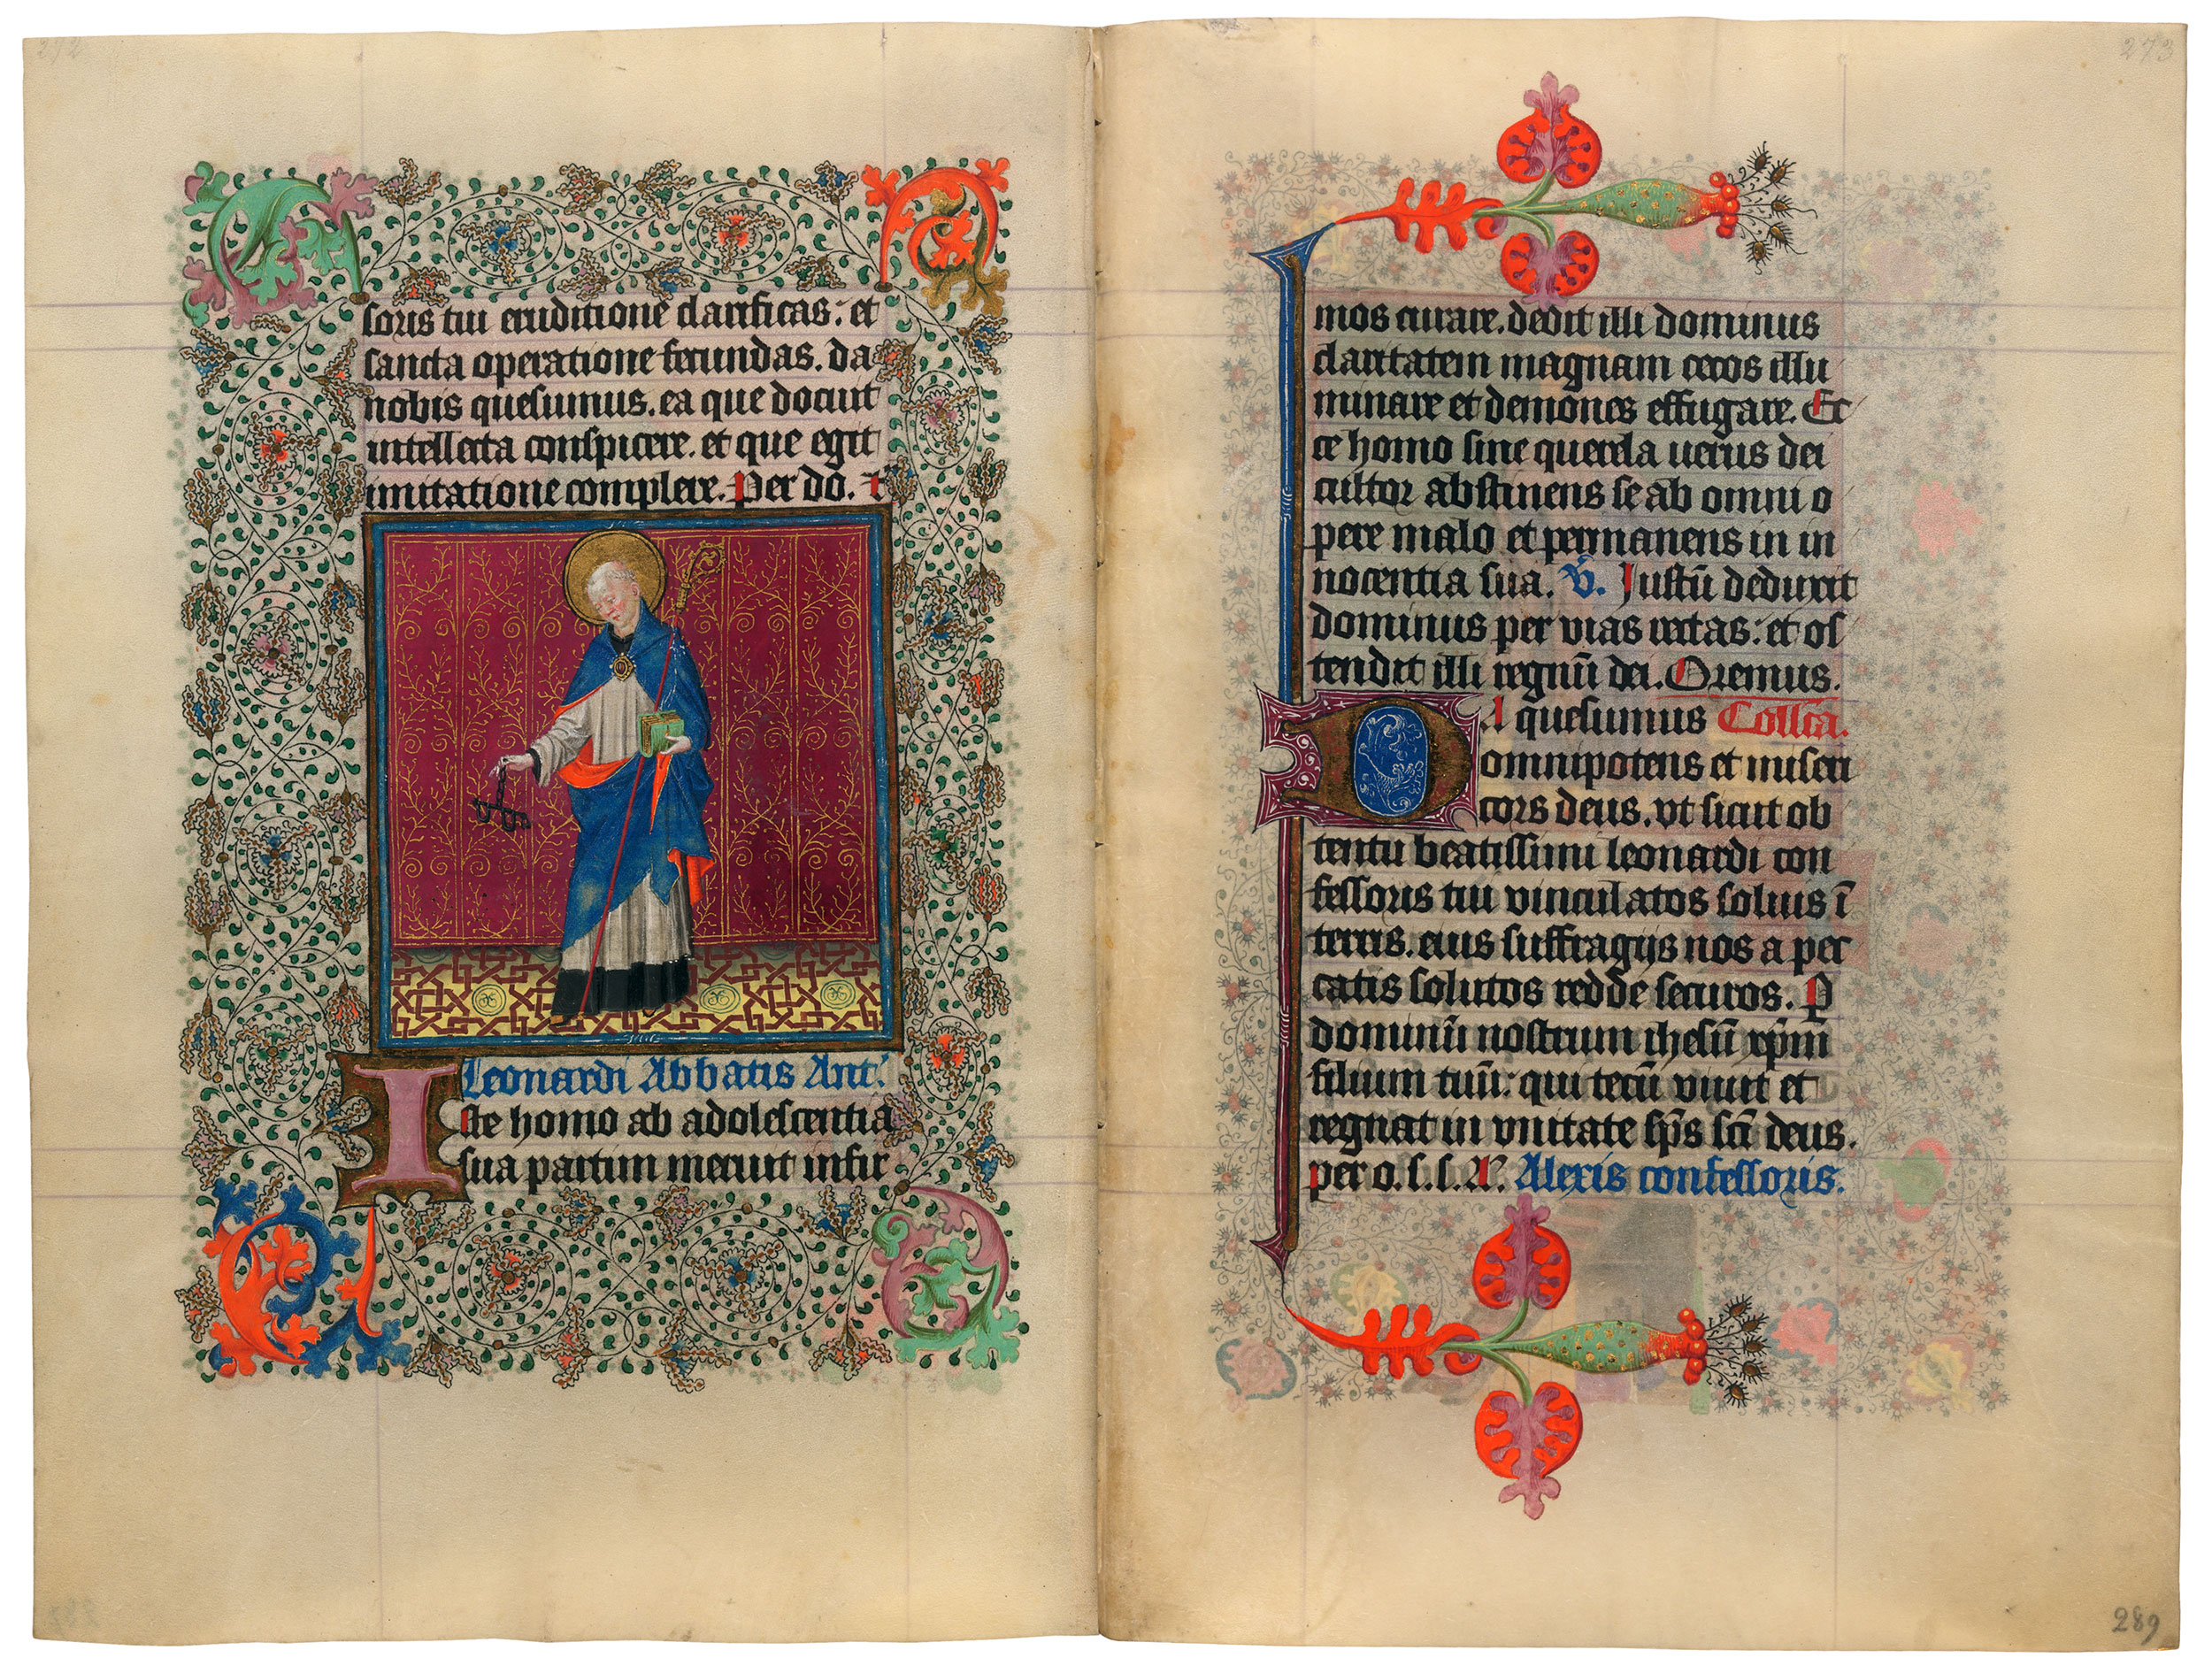 272
soris tui eruditione clarificas: et
sancta operatione fecundas. da
nobis quesumus. ea que docuit
intellectu conspicere. et que egit
imitatione complere. Per do.
Leonardi Abbatis Ant.
Iste homo ab adolescentia
sua partim meruit infir
273
mos curare. dedit illi dominus
claritatem magnam cecos illu
minare et demones effugare. Ec
ce homo sine querela uerus dei
cultor abstinens se ab omni o
pere malo et permanens in in
nocentia sua. V. Justū deduxit
dominus per vias rectas: et os
tendit illi regnū dei. Oremus.
DA quesumus Collcā.
omnipotens et miseri
cors deus. vt sicut ob
tentu beatissimi leonardi con
fessoris tui vinculatos soluis ī
terris. eius suffragijs nos a pec
catis solutos redde securos. P
dominū nostrum ihesū xp̄m
filium tuū: qui tecū viuit et
regnat in vnitate sp̄s sc̄i deus.
per o. s. s. A. Alexis confessoris.
289